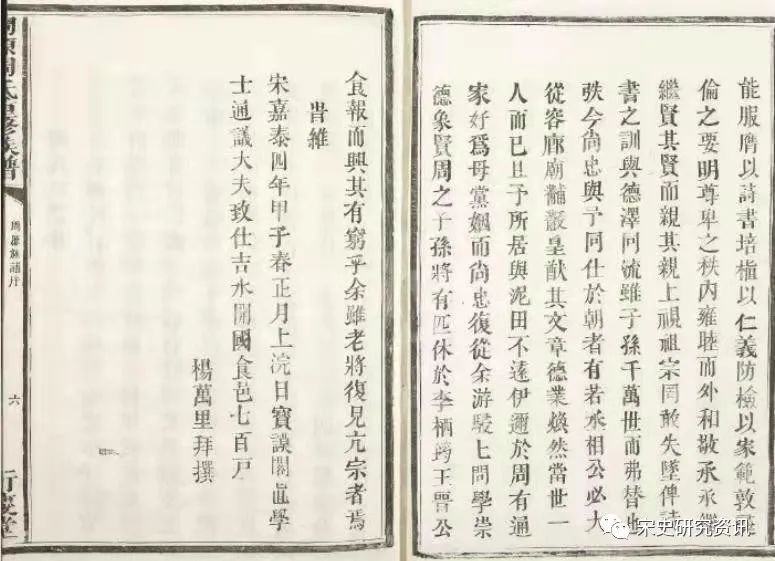 能服膺以詩書培植以仁義防檢以家範敦
倫之要明尊卑之秩內雍睦而外和敬承承繼
繼賢其賢而親其親上視祖宗罔敢失墜俾詩
書之訓與德澤同流雖子孫千萬世而弗替也
昳今尚忠與予同仕於朝者有若丞相公必大
從容廊廟黼黻皇猷其文章德業煥然當世一
人而已且予所居與泥田不遠伊邇於周有通
家好爲母黨姻而尚忠復從余游駸駸問學崇
德象賢周之子孫將有匹休於李栖筠王晉公
食報而興其有窮乎余雖老將復見亢宗者焉
旹維
宋嘉泰四年甲子春正月上浣日寶謨閣直學
士通議大夫致仕吉水開國食邑七百戶
楊萬里拜撰
周氏族譜
周氏族譜序
六
宋史研究资讯